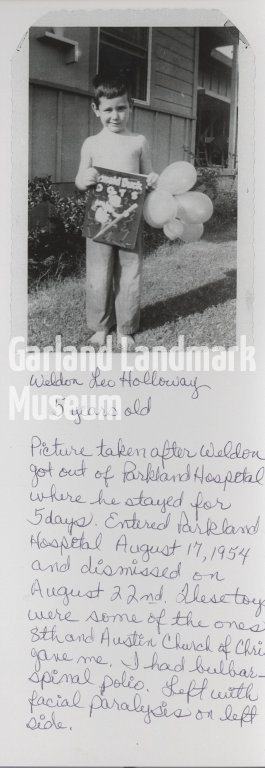 Garland Landmark
Museum
Weldon Leo Holloway
5 years old
Picture taken after Weldon
got out of Parkland Hospital
where he stayed for
5 days. Entered Parkland
Hospital August 17, 1954
and dismissed on
August 22nd. These toy
were some of the ones
8th and Austin Church of Chri
gave me. I had bulbar-
spinal polio. Left with
facial paralysis on left
side.